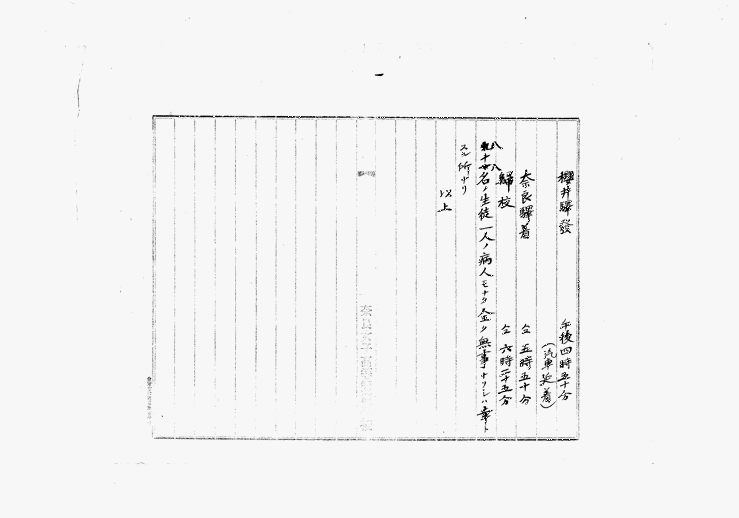 櫻井驛發 午後四時五十分
(汽車延着)
奈良驛着 仝五時五十分
歸校 仝六時二十五分
八十八名ノ生徒一人ノ病人モナク全ク無事ナリシハ幸ト
スル所ナリ
以上